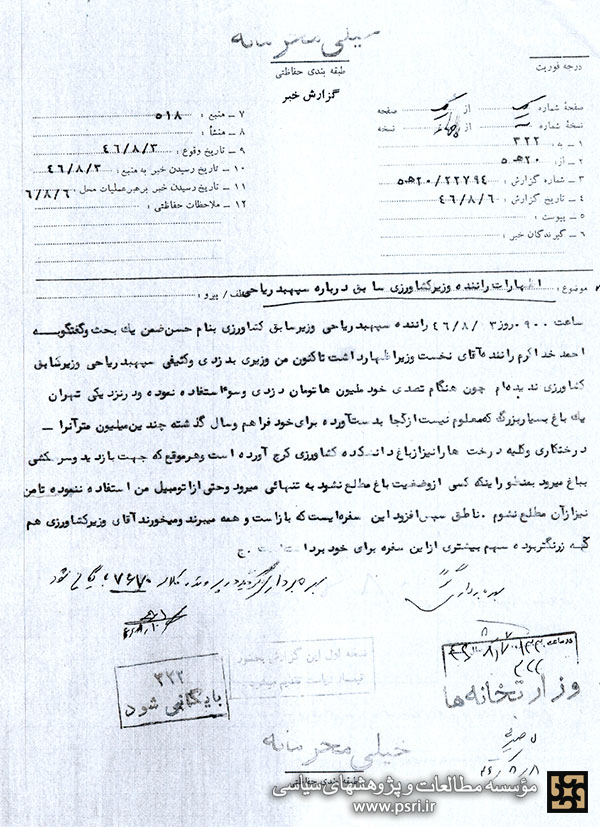 خیلی محرمانه
طبقه بندی حفاظتی
درجه فوریت
گزارش خبر
صفحهٔ شماره یک از یک صفحه
نسخهٔ شماره از چهار نسخه
۱ – به : ۳۲۲
۲ – از: ۲۰ﻫ ۵
۳ – شماره گزارش : ۲۲۷۹۴/۲۰ﻫ ۵
۴ – تاریخ گزارش : ۴۶/۸/۶
۵ – پیوست :
۶ – گیرندگان خبر :
۷ – منبع : ۵۱۸
۸ – منشأ :
۹ – تاریخ وقوع : ۴۶/۸/۳
۱۰ – تاریخ رسیدن خبر به منبع : ۴۶/۸/۳
۱۱ – تاریخ رسیدن خبر برهبرعملیات محل : ۶/۸/۶
۱۲ – ملاحظات حفاظتی :
موضوع : اظهارات راننده وزیرکشاورزی سابق درباره سپهبد ریاحی عطف / پیرو :
ساعت ۰۹۰۰ روز ۴۶/۸/۳ راننده سپهبد ریاحی وزیرسابق کشاورزی بنام حسن ضمن یک بحث وگفتگوبـــــه
احمد خداکرم راننده آقای نخست وزیراظهارداشت تاکنون من وزیری بدزدی وکثیفی سپهبد ریاحی وزیرسابق
کشاورزی ندیده ام چون هنگام تصدی خود ملیون ها تومان دزدی وسوء استفاده نموده ودرنزدیکی تهران
یک باغ بسیاربزرگ که معلوم نیست ازکجا بدست آورده برای خود فراهم وسال گذشته چندین میلیون مترآنرا –
درختکاری وکلیه درخت ها رانیزازباغ دانشکده کشاورزی کرج آورده است وهرموقع که جهت بازدید وسرکشی
بباغ میرود بمنظوراینکه کسی ازوضعیت باغ مطلع نشود به تنهائی میرود وحتی ازاتومبیل من استفاده ننموده تا من
نیزازآن مطلع نشوم . ناطق سپس افزود این سفره ایست که بازاست و همه میبرند ومیخورند آقای وزیرکشاورزی هم
که زرنگتربوده سهم بیشتری ازاین سفره برای خود برداشت است . ج
بهره برداری گردید در پرونده کلاسه ۷۶۷۰ بایگانی شود
بهره برداری
۳۲۲
بایگانی شود
نسخه اول این گزارش بحضور
تیمسار ریاست تقدیم میگردد
وزارتخانه ها
۴۶/۸/۸
خیلی محرمانه
طبقه بندی حفاظتی
مؤسسه مطالعات و پژوهشهای سیاسی
www.psri.ir